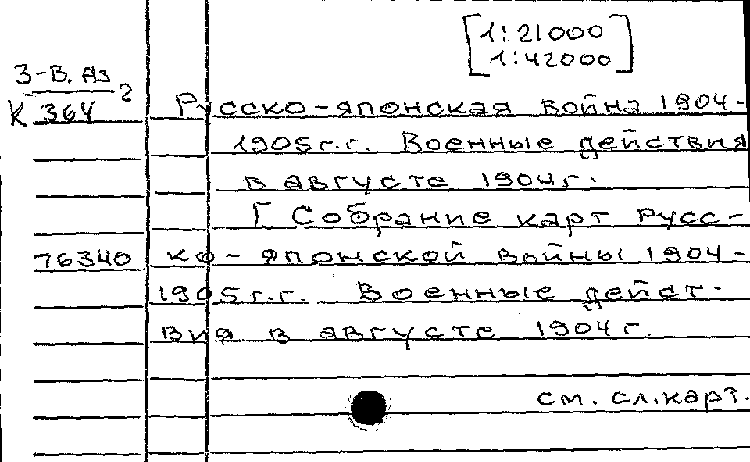 [1:21000
1:42000]
З-В. Аз
К 364 2
Русско-японская война 1904-
1905г.г. Военные действия
в августе 1904г.
[ Собрание карт Русс-
76340 ко-японской войны 1904-
1905г.г. Военные дейст-
вия в августе 1904г.
см. сл. карт.